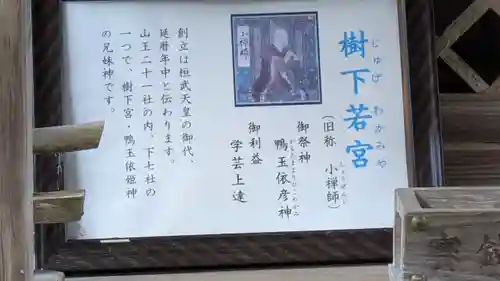 樹下若宮
じゅげ わかみや
(旧称 小禅師)
こぜんじ
御祭神 鴨玉依彦神
かもたまよりひこのかみ
御利益 学芸上達
小禅師
創立は桓武天皇の御代、
延暦年中と伝わります。
山王二十一社の内、下七社の
一つで、樹下宮・鴨玉依姫神
の兄妹神です。